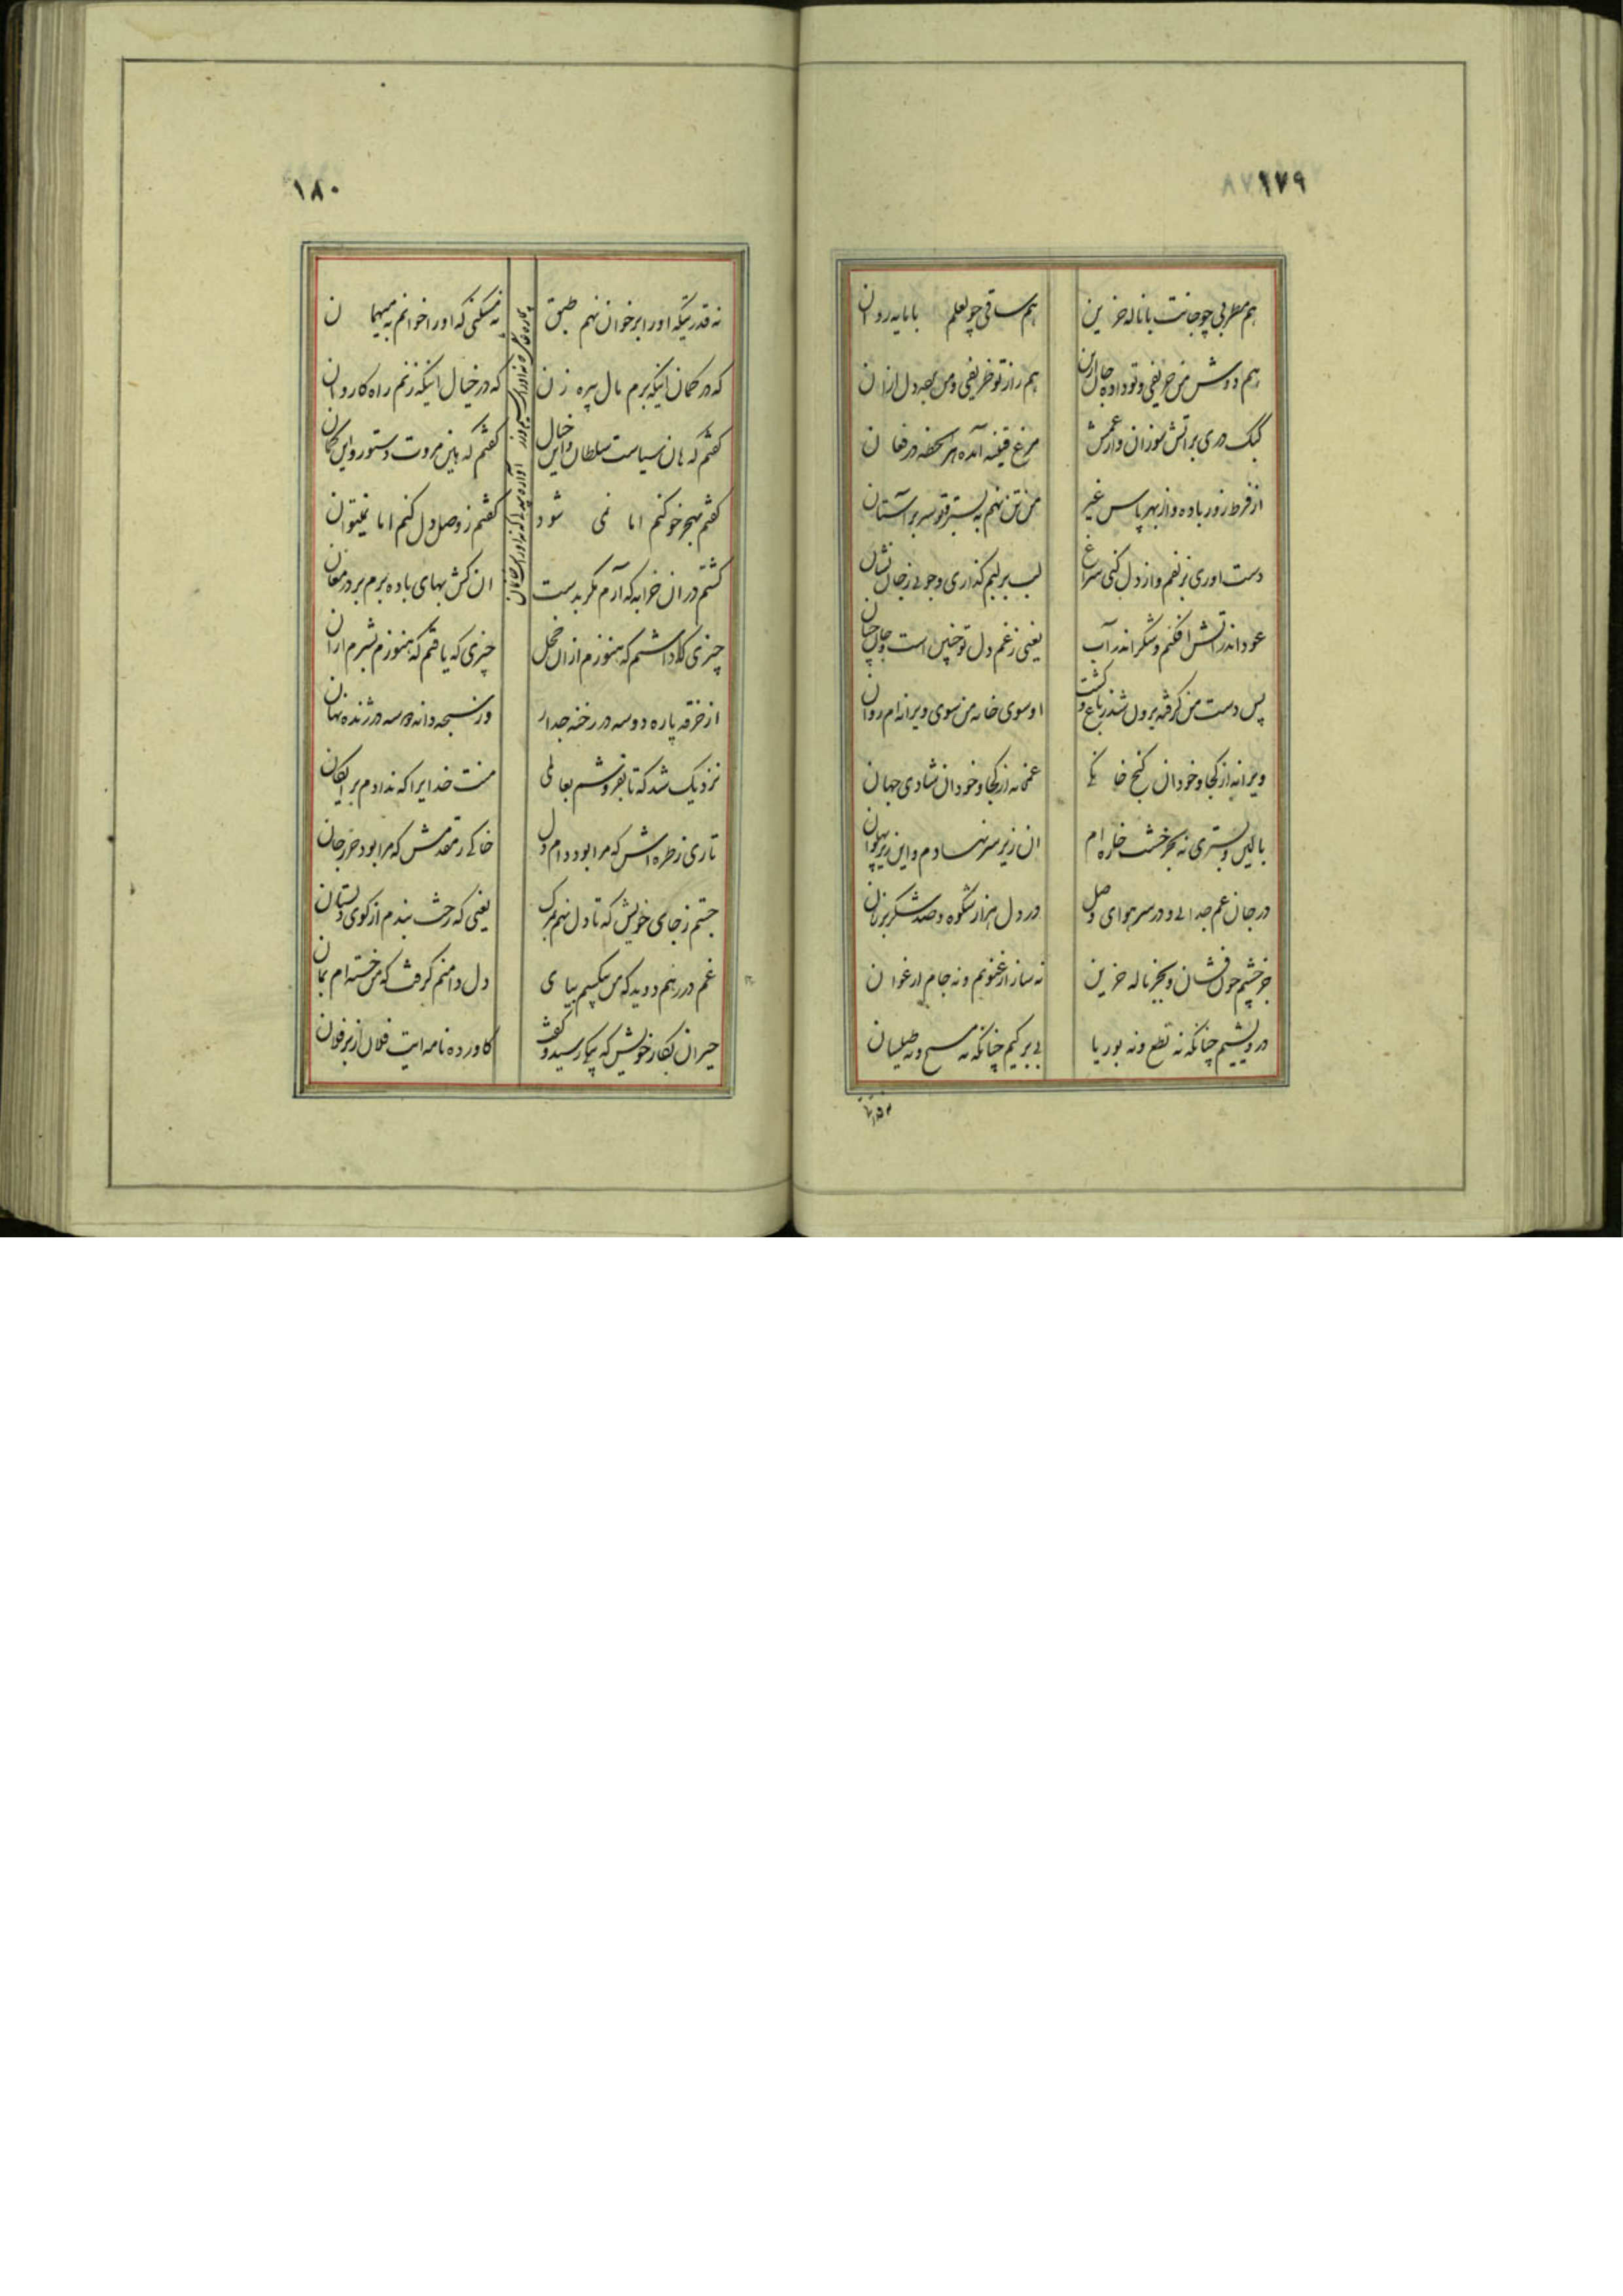 ١٧٩
هم مطربی چو جانت با ناله حزین
هم ساقی چو لعلم با مایه روان
هم دوش من حریفی و تو داده جان ازین
هم راز تو ظریفی و من بصد دل ازان
کبک دری بر اتش سوزان و از غمش
مرغ قنینه آمده هر لحظه در فغان
از فرط زور باده و از بهر پاس غیر
من تن نهم به بستر و تو سر بر آستان
دست اوری بزلفم و از دل کنی سراغ
لب بر لبم گذاری و جوئی ز جان نشان
عود اندر اتش افکنم و شکر اندر آب
یعنی ز غم دل تو چنین است و جان چنان
پس دست من گرفته برون شد ز باغ و گشت
او سوی خانه من سوی ویرانه ام روان
ویرانه از کجا و خود ان کنج خانگی
غمخانه از کجا و خود ان شادی جهان
بالین و بستری نه بجز خشت خاره ام
ان زیر سر نهادم و این زیر پهلوان
در جان غم جدائی و در سر هوای وصل
در دل هزار شکوه و صد شکر بر زبان
جز چشم خون فشان و بجز ناله حزین
نه ساز ارغنونم و نه جام ارغوان
درویشیم چنانکه نه نطع و نه بوریا
بی برگیم چنانکه نه مسح و نه طیلسان
١٨٠
نه قدرتیکه اورا بر خوان نهم طبق
نه مسکنی که اورا خوانم به میهمان
که در گمان اینکه برم مال پیره زن
که در خیال اینکه زنم راه کاروان
گفتم که هان سیاست سلطان و این خیال
گفتم که هین مروت دستور و این گمان
گفتم بهجر خو کنم اما نمی شود
گفتم ز وصل دل کنم اما نمیتوان
گشتم در ان خرابه که آرم مگر بدست
ان کش بهای باده برم بر در مغان
چیزی که داشتم که هنوزم از ان خجل
چیزی که یافتم که هنوزم بشرم ازان
از خرقه پاره دو سه در رخنه جدار
وز سبحه دانه دو سه در ژنده نهان
نزدیک شد که تا بفروشم بعالمی
منت خدایرا که ندادم برایگان
تاری ز طره اش که مرا بود دام دل
خاکی ز مقدمش که مرا بود حرز جان
جستم ز جای خویش که تا دل نهم بمرگ
یعنی که رخت بندم از کوی دلستان
غم در رهم دوید که من بیکسم بیای
دل دامنم گرفت که من خسته ام بمان
حیران بکار خویش که پیکی رسید و گفت
کاورده نامه ایت فلان از بر فلان